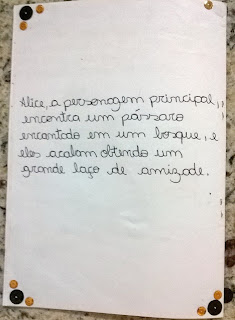 Alice, a personagem principal,
encontra um pássaro
encantado em um bosque, e
eles acabam obtendo um
grande laço de amizade.